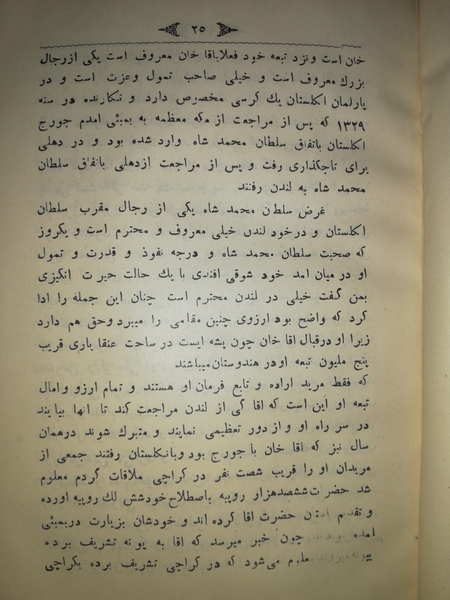 ۲۵
خان است ونزد تبعه خود فعلاباقا خان معروف است یکی ازرجال
بزرك معروف است و خیلی صاحب تمول وعزت است و در
پارلمان انکلستان یك کرسی مخصوص دارد و نکارنده در سنه
۱۳۲۹ که پس از مراجعت از مکه معظمه به بمبئی امدم جورج
انکلستان باتفاق سلطان محمد شاه وارد شده بود و در دهلی
برای تاجکذاری رفت و پس از مراجعت ازدهلی باتفاق سلطان
محمد شاه به لندن رفتند
غرض سلطان محمد شاه یکی از رجال مقرب سلطان
انکلستان و درخود لندن خیلی معروف و محترم است و یکروز
که صحبت سلطان محمد شاه و درجه نفوذ و قدرت و تمول
او درمیان امد خود شوقی افندی با یك حالت حیرت انکیزی
بمن گفت خیلی در لندن محترم است چنان این جمله را ادا
کرد که واضح بود ارزوی چنین مقامی را میبرد وحق هم دارد
زیرا او درقبال اقا خان چون پشه ایست در ساحت عنقا باری قریب
پنج ملیون تبعه اودر هندوستان میباشند
که فقط مرید اراده و تابع فرمان او هستند و تمام ارزو وامال
تبعه او این است که اقا کی از لندن مراجعت کند تا انها بیایند
در سر راه او و از دور تعظیمی نمایند و متبرك شوند درهمان
سال نیز که اقا خان با جورج بود وبانکلستان رفتند جمعی از
مریدان او را قریب شصت نفر در کراچی ملاقات کردم معلوم
شد حضرت ششصدهزار روپیه باصطلاح خودشش لك روپیه اورده
و تقدیم استان حضرت اقا کرده اند و خودشان بزیارت دربمبئی
امده بودند چون خبر میرسد که اقا به پونه تشریف برده
معلوم می‌شود که در کراچی تشریف برده بکراچی